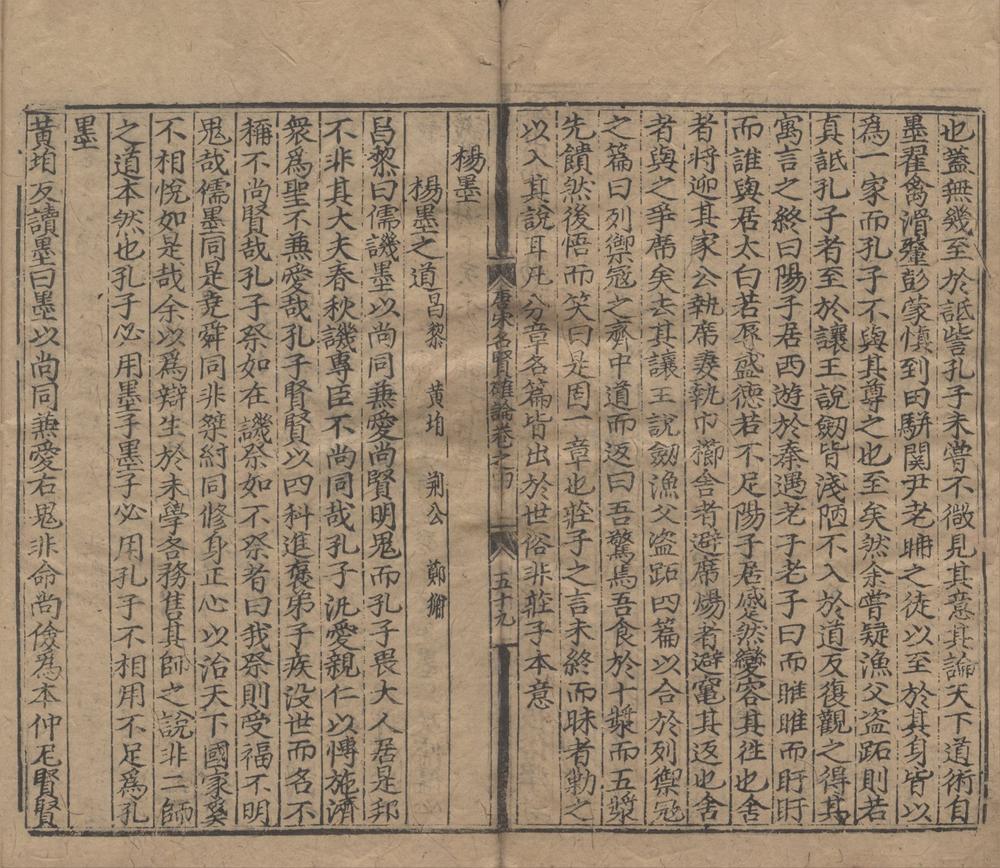 也蓋無幾至於詆訾孔子未嘗不微見其意其論天下道術自
墨翟禽滑釐彭蒙愼到田駢関尹老聃之徒以至於其身皆以
為一家而孔子不與其尊之也至矣然余嘗疑漁父盗跖則若
真詆孔子者至於讓王說劒皆淺陋不入於道反復觀之得其
寓言之終曰陽子居西遊於秦遇老子老子曰而睢睢而盱盱
而誰與居太白若辱盛德若不足陽子居蹙然變容其徃也舎
者將迎其家公執席妻執巾櫛舎者避席煬者避竈其返也舎
者與之爭席矣去其讓王說劒漁父盗跖四篇以合於列禦冦
之篇曰列禦冦之齊中道而返曰吾驚焉吾食於十漿而五漿
先饋然後悟而笑曰是固一章也莊子之言未終而昧者勦之
以入其說耳凡分章名篇皆出於世俗非莊子本意
唐宋名賢確論卷之四
五十九
楊墨
楊墨之道昌黎 黄垍 荆公 鄭獬
昌黎曰儒譏墨以尚同兼愛尚賢明鬼而孔子畏大人居是邦
不非其大夫春秋譏專臣不尚同哉孔子汎愛親仁以慱施濟
衆為聖不兼愛哉孔子賢賢以四科進褒弟子疾没世而名不
稱不尚賢哉孔子祭如在譏祭如不祭者曰我祭則受福不明
鬼哉儒墨同是堯舜同非桀紂同修身正心以治天下國家奚
不相恱如是哉余以爲辯生於末學各務售其師之說非二師
之道本然也孔子必用墨子墨子必用孔子不相用不足爲孔
墨
黄垍反讀墨曰墨以尚同兼愛右鬼非命尚儉為本仲尼賢賢